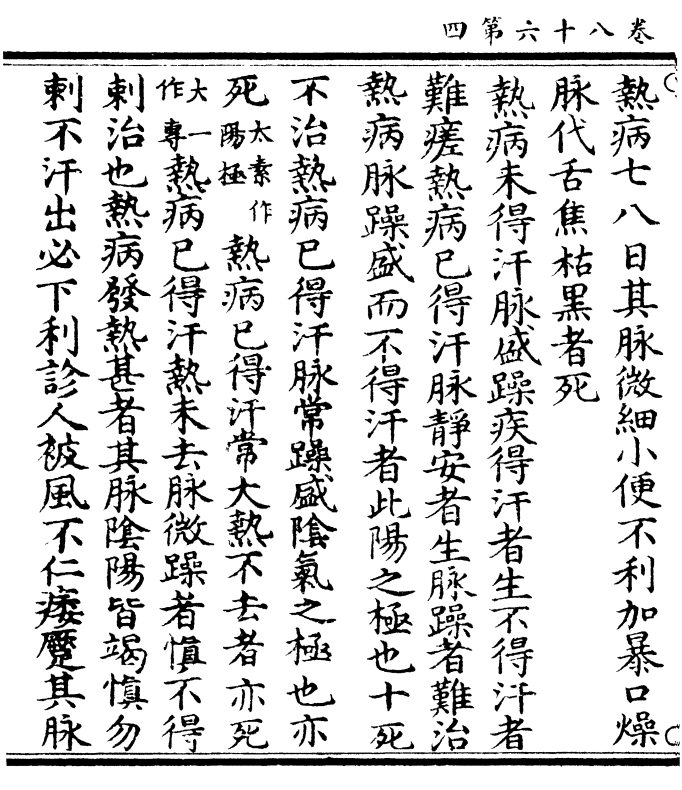 卷八十六第四
熱病七八日其脉微細小便不利加暴口燥
脉代舌焦枯黑者死
熱病未得汗脉盛躁疾得汗者生不得汗者
難瘥熱病已得汗脉靜安者生脉躁者難治
熱病脉躁盛而不得汗者此陽之極也十死
不治熱病已得汗脉常躁盛陰氣之極也亦
死太素作陽極熱病已得汗常大熱不去者亦死
大一作專熱病已得汗熱未去脉微躁者慎不得
刺治也熱病發熱甚者其脉陰陽皆竭慎勿
刺不汗出必下利診人被風不仁痿蹷其脉